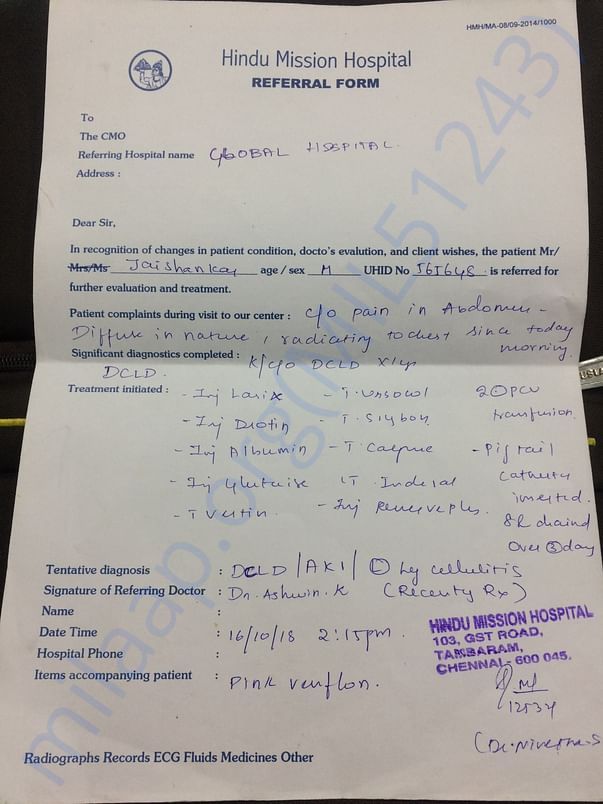 HMH/MA-08/09-2014/1000
Hindu Mission Hospital
REFERRAL FORM
To
The CMO
Referring Hospital name GLOBAL HOSPITAL.
Address :
Dear Sir,
In recognition of changes in patient condition, docto's evalution, and client wishes, the patient Mr/
Mrs/Ms Jaishankar age / sex M UHID No 161648 is referred for
further evaluation and treatment.
Patient complaints during visit to our center : c/o pain in Abdomen -
Diffuse in nature, radiating to chest since today
morning.
Significant diagnostics completed : K/c/o DCLD x 1yr
DCLD.
Treatment initiated :
- Inj Lasix
- Inj
- Inj Albumin
- Inj
- T
- T. Ursocol
- T.
- T.
- T. Inderal
- Inj
transfusion.
- Pigtail
catheter
inserted.
8L drained
over 3 day
Tentative diagnosis : DCLD / AKI / L leg cellulitis
Signature of Referring Doctor : Dr. Ashwin. K (Recently Rx)
Name :
Date Time : 16/10/18 2:15pm.
Hospital Phone :
Items accompanying patient : Pink venflon.
HINDU MISSION HOSPITAL
103, GST ROAD,
TAMBARAM,
CHENNAI - 600 045.
12534
(Dr. Nivetha.S
Radiographs Records ECG Fluids Medicines Other
milaap.org(MIL51243)